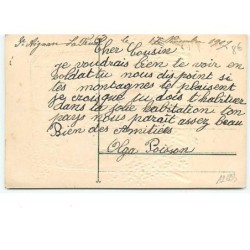 St Aignan le
Cher Cousin
je voudrais bien te voir en
soldat tu nous dis point si
les montagnes te plaisent
je crois que tu dois t habituer
dans ta jolie habitation ton
pays nous parait assez beau
Bien des Amitiées
Olga Poisson